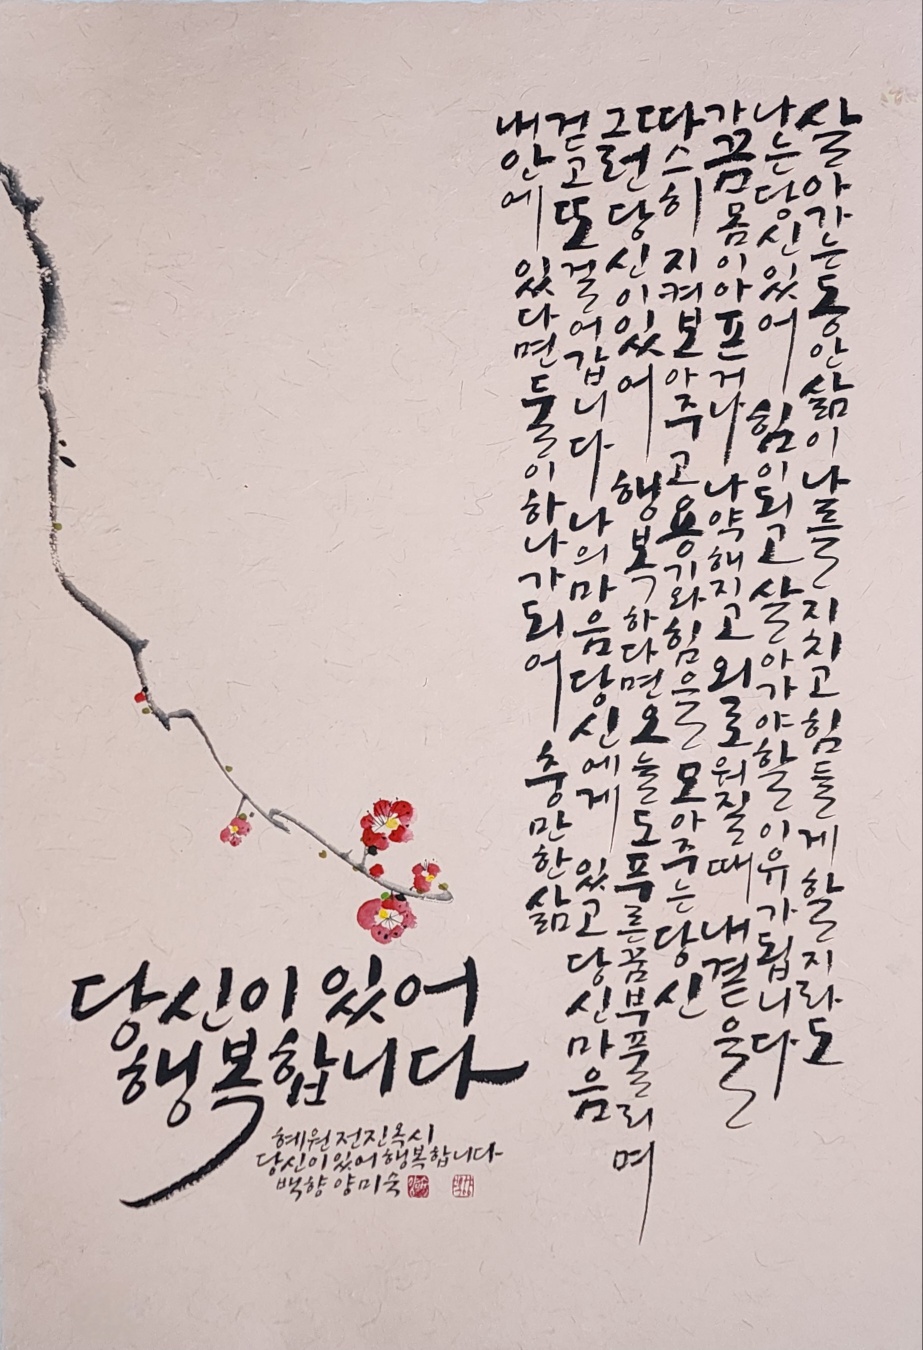 살아가는동안삶이나를지치고힘들게할지라도
나는당신있어 힘이되고살아가야할이유가됩니다
가끔몸이아프거나 나약해지고외로워질때 내곁을
따스히 지켜보아주고용기와힘을 모아주는당신
그런당신이있어 행복하다면오늘도푸른꿈부풀리며
걷고또걸어갑니다 나의마음당신에게 있고당신마음
내안에 있다면둘이하나가되어 충만한삶
당신이 있어
행복합니다
혜원전진옥시
당신이있어행복합니다
백향 양미숙